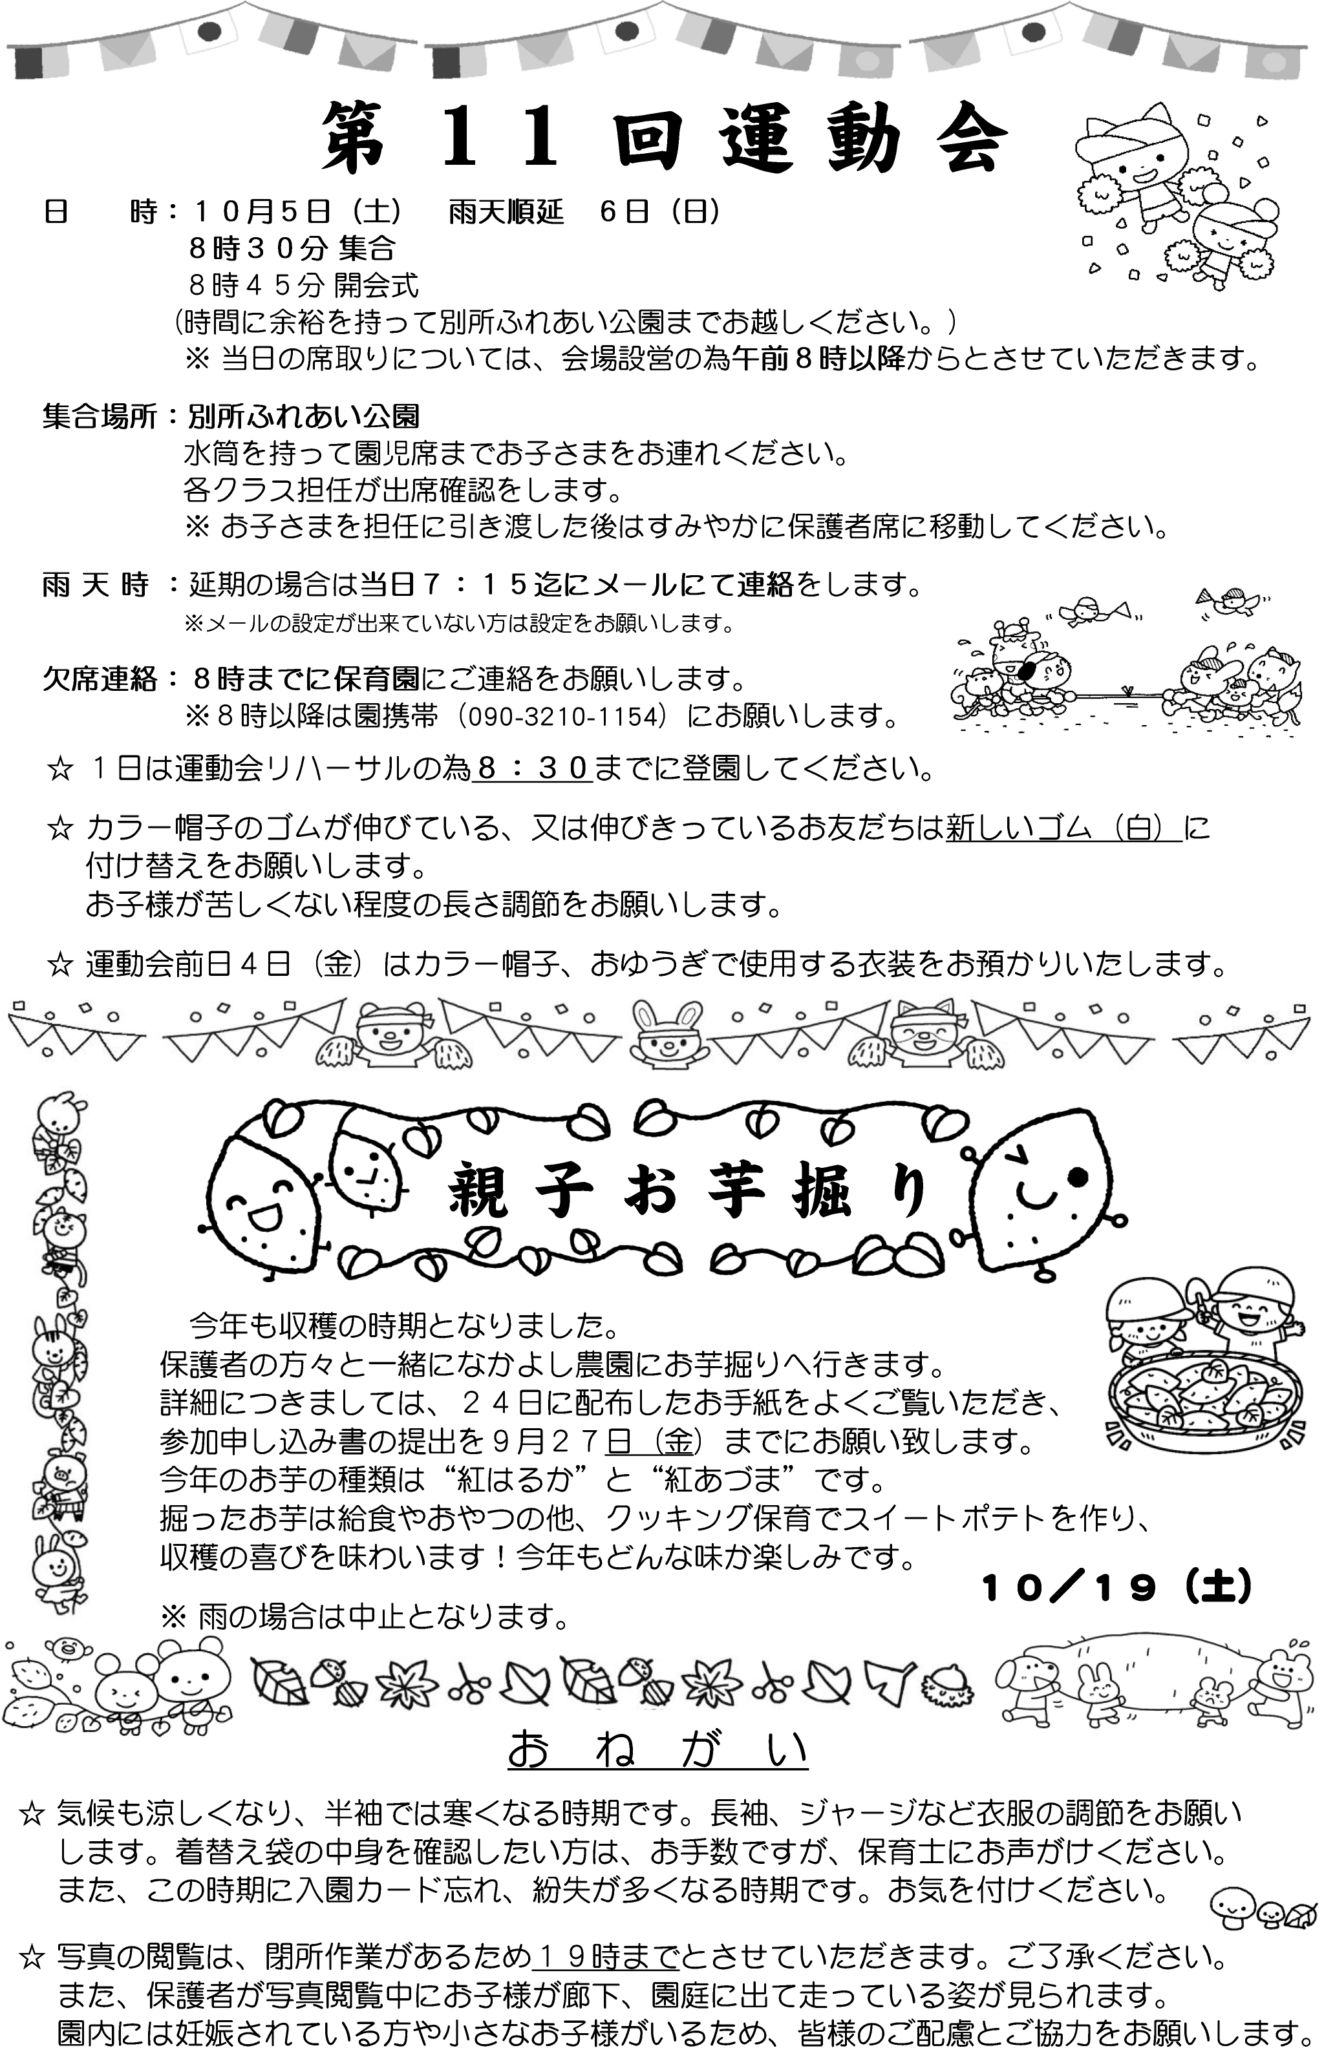 第１１回運動会
日　　時：１０月５日（土）　雨天順延　６日（日）
８時３０分 集合
８時４５分 開会式
（時間に余裕を持って別所ふれあい公園までお越しください。）
※ 当日の席取りについては、会場設営の為午前８時以降からとさせていただきます。
集合場所：別所ふれあい公園
水筒を持って園児席までお子さまをお連れください。
各クラス担任が出席確認をします。
※ お子さまを担任に引き渡した後はすみやかに保護者席に移動してください。
雨 天 時 ：延期の場合は当日７：１５迄にメールにて連絡をします。
※メールの設定が出来ていない方は設定をお願いします。
欠席連絡：８時までに保育園にご連絡をお願いします。
※８時以降は園携帯（090-3210-1154）にお願いします。
☆ １日は運動会リハーサルの為８：３０までに登園してください。
☆ カラー帽子のゴムが伸びている、又は伸びきっているお友だちは新しいゴム（白）に
付け替えをお願いします。
お子様が苦しくない程度の長さ調節をお願いします。
☆ 運動会前日４日（金）はカラー帽子、おゆうぎで使用する衣装をお預かりいたします。
親子お芋掘り
今年も収穫の時期となりました。
保護者の方々と一緒になかよし農園にお芋掘りへ行きます。
詳細につきましては、２４日に配布したお手紙をよくご覧いただき、
参加申し込み書の提出を９月２７日（金）までにお願い致します。
今年のお芋の種類は“紅はるか”と“紅あづま”です。
掘ったお芋は給食やおやつの他、クッキング保育でスイートポテトを作り、
収穫の喜びを味わいます！今年もどんな味か楽しみです。
１０／１９（土）
※ 雨の場合は中止となります。
おねがい
☆ 気候も涼しくなり、半袖では寒くなる時期です。長袖、ジャージなど衣服の調節をお願い
します。着替え袋の中身を確認したい方は、お手数ですが、保育士にお声がけください。
また、この時期に入園カード忘れ、紛失が多くなる時期です。お気を付けください。
☆ 写真の閲覧は、閉所作業があるため１９時までとさせていただきます。ご了承ください。
また、保護者が写真閲覧中にお子様が廊下、園庭に出て走っている姿が見られます。
園内には妊娠されている方や小さなお子様がいるため、皆様のご配慮とご協力をお願いします。